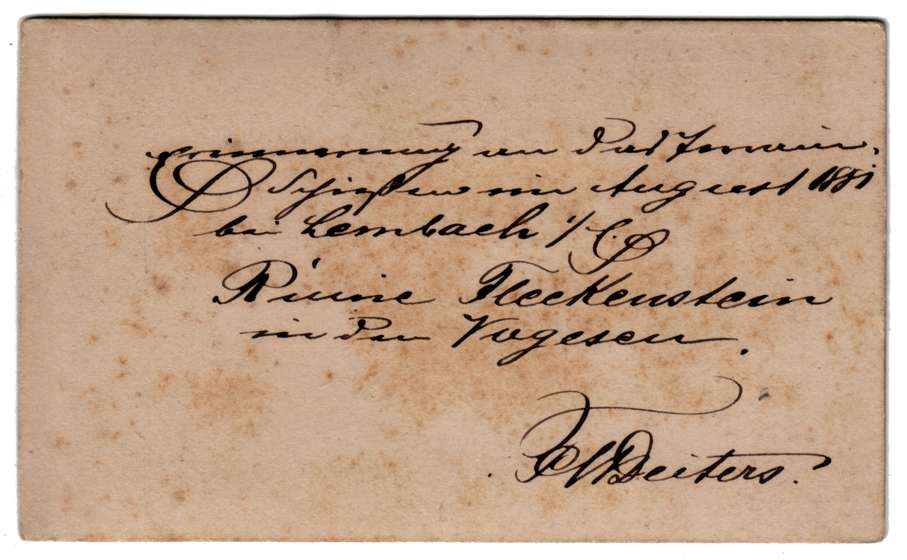 Erinnerung an das Terrain-
Schießen im August 1881
bei Lembach i/E.
Ruine Fleckenstein
in den Vogesen.
FWDeiters.